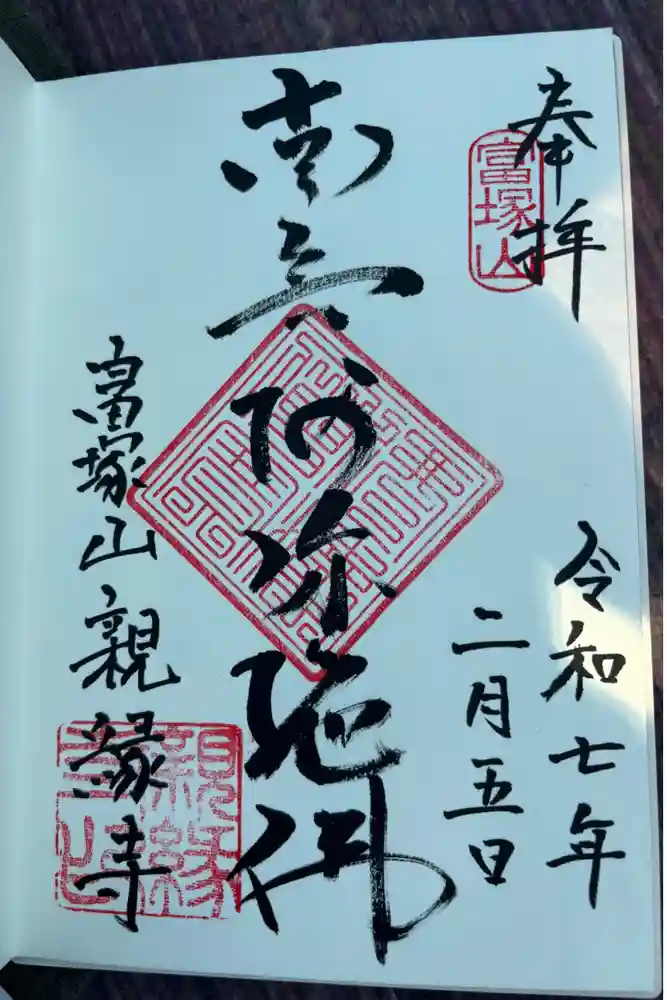 奉拝
富塚山
令和七年
二月五日
南无阿弥陀佛
富塚山親縁寺
親縁寺